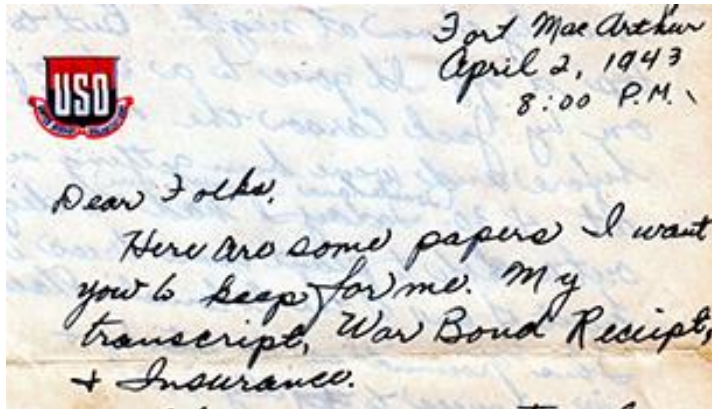 Fort MacArthur
April 2, 1943
8:00 P.M.
USO
Dear Folks,
Here are some papers I want
you to keep for me. My
transcript, War Bond Receipt,
+ Insurance.